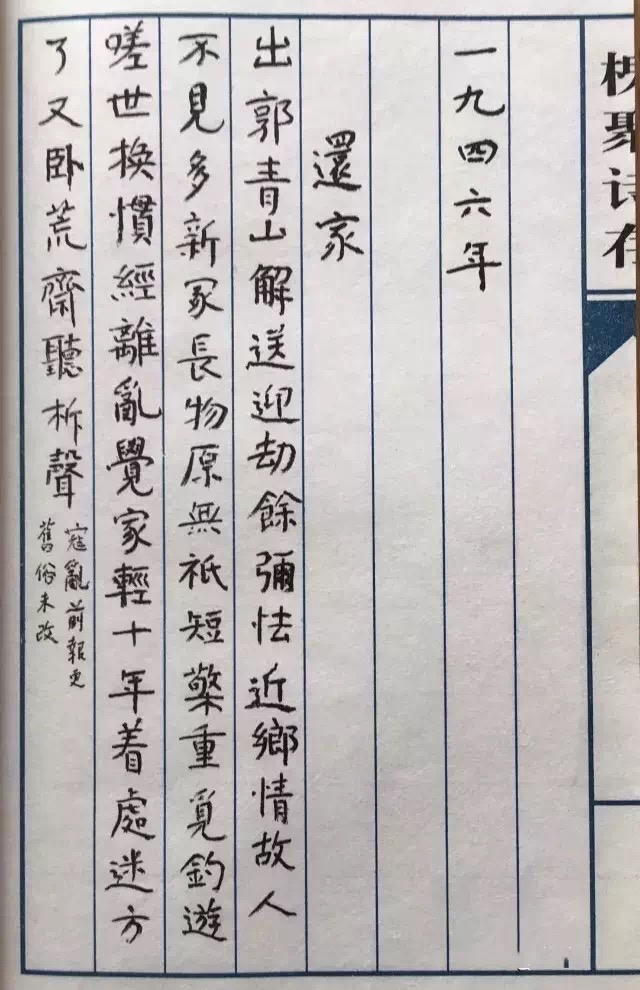 槐聚诗存
一九四六年
還家
出郭青山解送迎劫餘彌怯近鄉情故人
不見多新冢長物原無祇短檠重覓釣遊
嗟世換慣經離亂覺家輕十年着處迷方
了又卧荒齋聽柝聲
寇亂前報更
舊俗未改